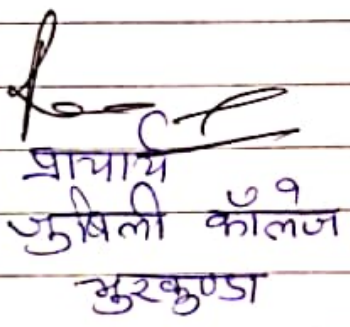 प्राचार्य
जुबिली कॉलेज
भुरकुण्डा